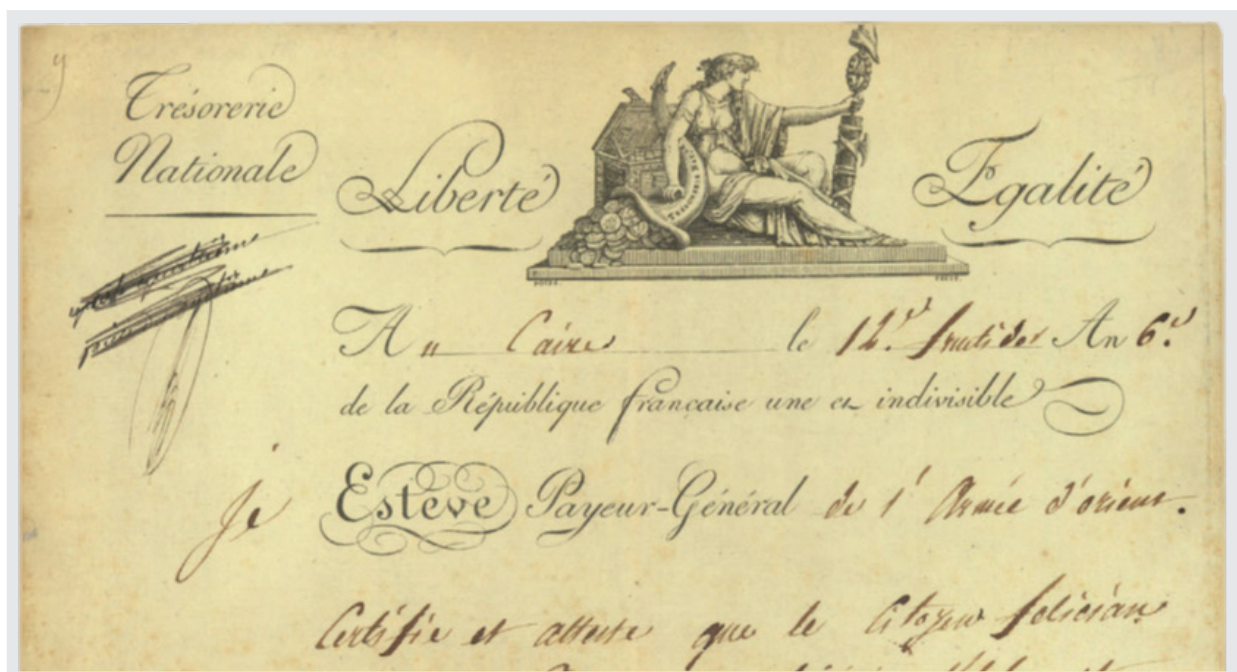 Trésorerie
Nationale
Liberté
Égalité
Au Caire le 12.e fructidor An 6.e
de la République française une et indivisible
Je Estève Payeur-Général de l'Armée d'orient.
Certifie et atteste que le Citoyen felician